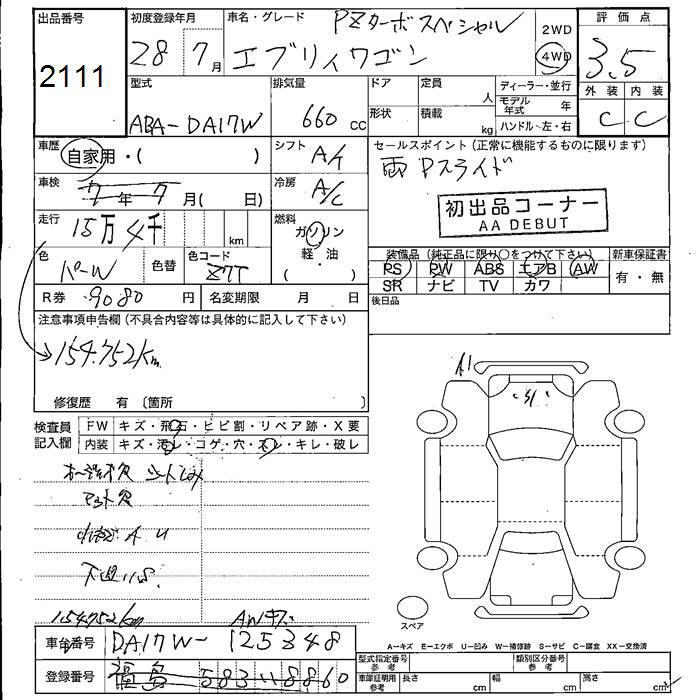 出品番号 初度登録年月 車名・グレード PZターボスペシャル 2WD 評価点
2111 28 7月 エブリィワゴン 4WD 3.5
型式 排気量 ドア 定員 人 ディーラー・並行 外装 内装
ABA-DA17W 660 cc 形状 積載 kg モデル年式 年 C C
ハンドル・左・右
車歴 自家用・( ) シフト A/T セールスポイント(正常に機能するものに限ります)
両Pスライド
車検 7年7月( 日) 冷房 A/C
初出品コーナー
AA DEBUT
走行 15万4千 km 燃料 ガソリン
軽・油
( )
色 パールW 色替 色コード Z7T 装備品(純正品に限り○をつけて下さい) 新車保証書
PS PW ABS エアB AW 有・無
SR ナビ TV カワ
R券 9080 円 名変期限 月 日 後日品
注意事項申告欄(不具合内容等は具体的に記入して下さい)
154.752km
修復歴 有〔箇所
A1
検査員記入欄 FW キズ・飛石・ヒビ割・リペア跡・X要
内装 キズ・汚レ・コゲ・穴・スレ・キレ・破レ
シートしみ
154752km AWキズ
スペア
A-キズ E-エクボ U-凹み W-補修跡 S-サビ C-腐食 XX-交換済
車台番号 DA17W-125348
登録番号 福島 583 い 8860
型式指定番号参考 類別区分番号参考
車庫証明用参考 長さ cm 幅 cm 高さ cm